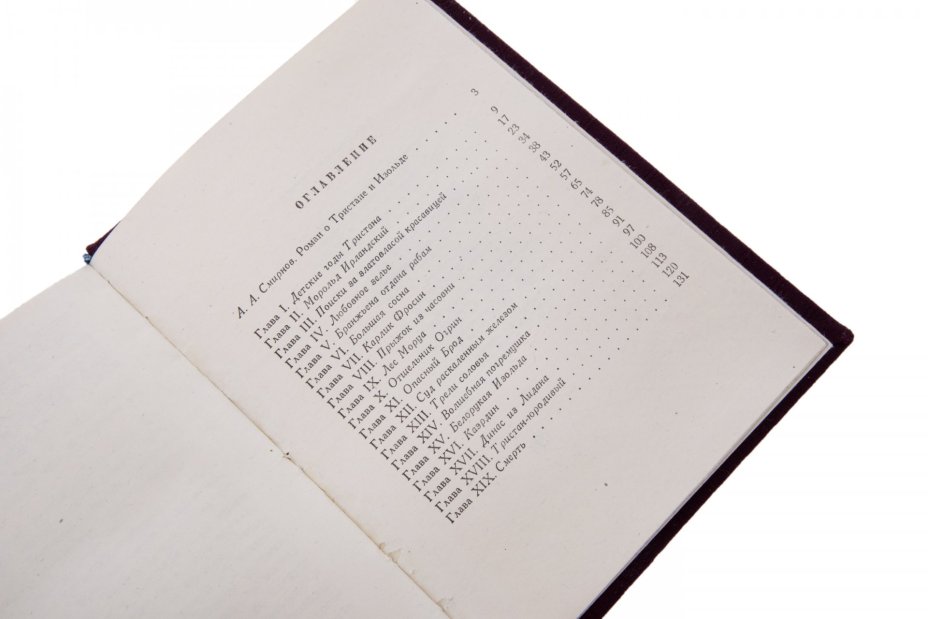 ОГЛАВЛЕНИЕ
А. А. Смирнов. Роман о Тристане и Изольде . . . . 3
Глава I. Детские годы Тристана . . . . 9
Глава II. Морольд Ирландский . . . . 17
Глава III. Поиски за златовласой красавицей . . . . 23
Глава IV. Любовное зелье . . . . 34
Глава V. Бранжьена отдана рабам . . . . 38
Глава VI. Большая сосна . . . . 43
Глава VII. Карлик Фросин . . . . 52
Глава VIII. Прыжок из часовни . . . . 57
Глава IX. Лес Моруа . . . . 65
Глава X. Отшельник Огрин . . . . 74
Глава XI. Опасный Брод . . . . 78
Глава XII. Суд раскаленным железом . . . . 85
Глава XIII. Трели соловья . . . . 91
Глава XIV. Волшебная погремушка . . . . 97
Глава XV. Белорукая Изольда . . . . 100
Глава XVI. Каэрдин . . . . 108
Глава XVII. Динас из Лидана . . . . 113
Глава XVIII. Тристан-юродивый . . . . 120
Глава XIX. Смерть . . . . 131